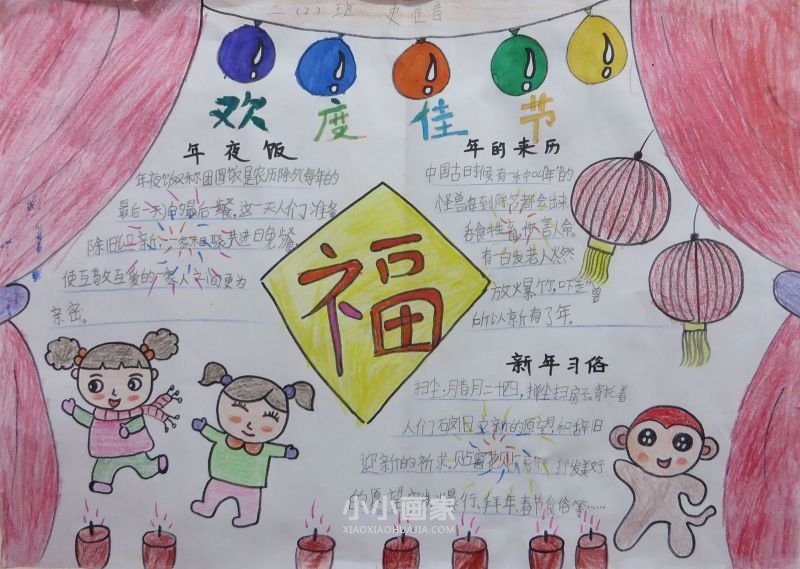 二(2)班 史佳音
欢度佳节
年夜饭
年夜饭又称团圆饭是农历除夕每年的
最后一天的最后一餐,这一天人们准备
除旧迎新,一家相聚共进晚餐,
使互敬互爱的一家人之间更为
亲密。
年的来历
中国古时候有一种叫"年"的
怪兽每到除夕都会出来
吞食牲畜,伤害人命。
有一白发老人火然
放火暴竹,吓走"兽
所以新有了年。
福
新年习俗
扫尘:月昔月二十四,掸尘扫房子。寄托着
人们石皮旧立新的原望和辞旧
迎新的祈求,贴窗花贴
美好
拜年春节食俗等……
小小画家
XIAOXIAOHUAJIA.COM